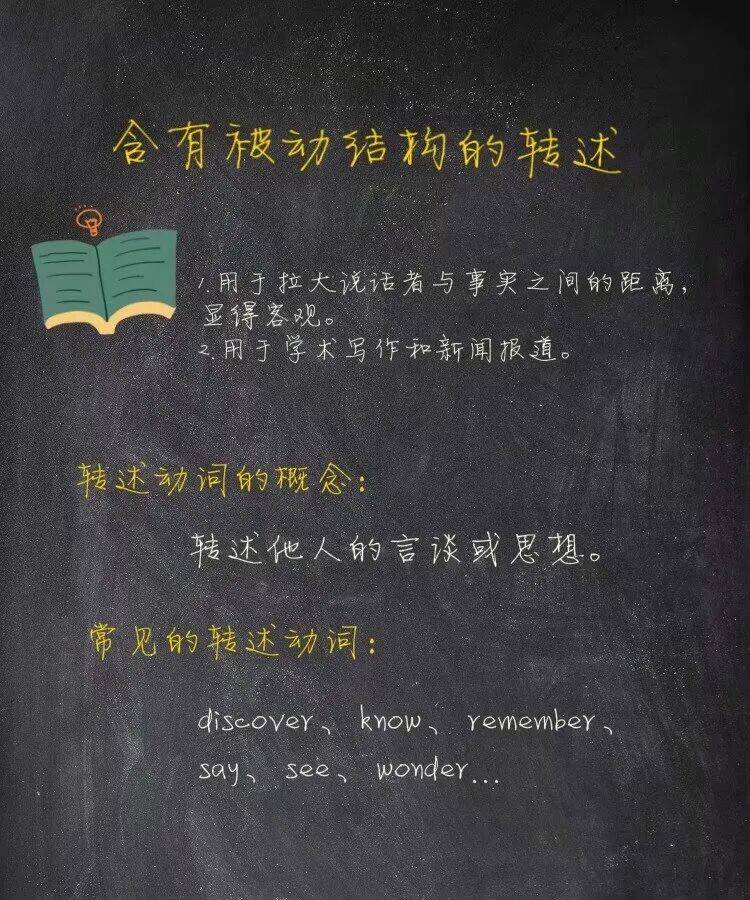 含有被动结构的转述
1.用于拉大说话者与事实之间的距离，
显得客观。
2.用于学术写作和新闻报道。
转述动词的概念：
转述他人的言谈或思想。
常见的转述动词：
discover、know、remember、
say、see、wonder...